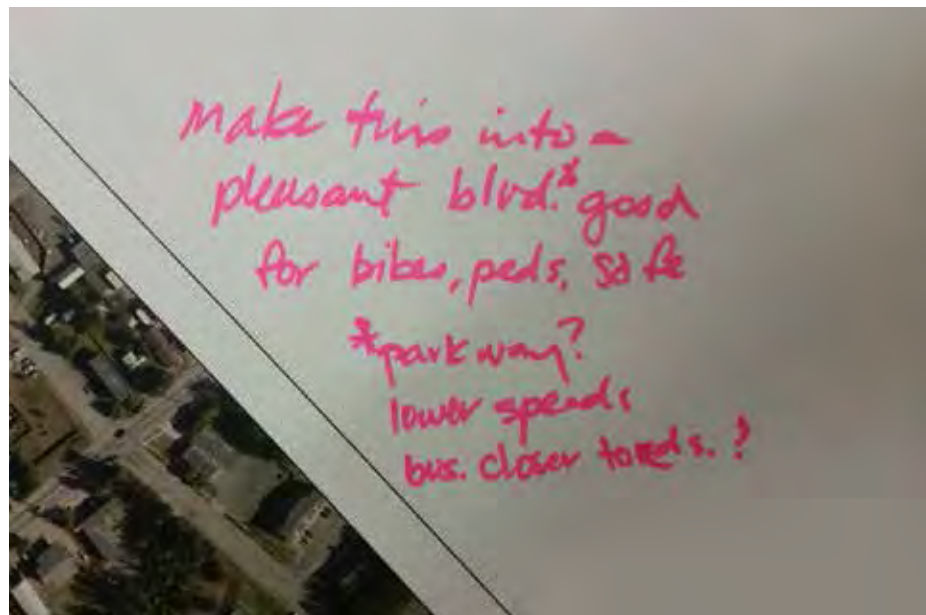 Make this into a
pleasant blvd.* good
for bikes, peds, safe
*parkway?
lower speeds
bus. closer to rds.?